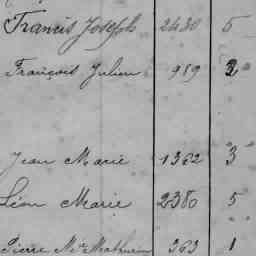 Francis Joseph 2430 5
François Julien 989 2
Jean Marie 1362 3
Léon Marie 2380 5
Pierre Mie Mathurin 363 1